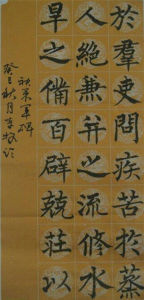 於羣吏問疾苦於蒸
人絶兼并之流修水
旱之備百辟兢莊以
初末軍碑
癸巳秋月李牧论